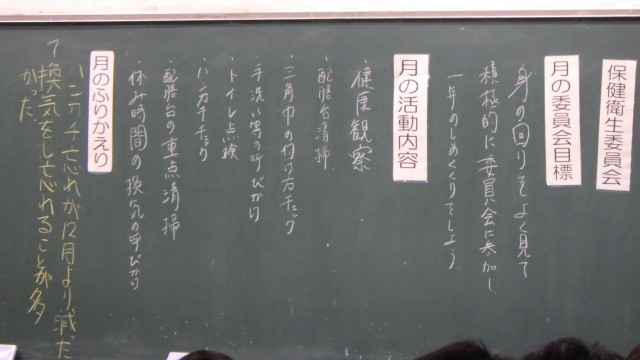 保健衛生委員会
月の委員会目標
身の回りをよく見て
積極的に委員会に参加し
一年のしめくくりをしよう
月の活動内容
・健康観察
・配膳台清掃
・三角巾の付け方チェック
・手洗い等の呼びかけ
・トイレ点検
・ハンカチチェック
・配膳台の重点清掃
・休み時間の換気の呼びかけ
月のふりかえり
ハンカチ忘れが12月より減った
て換気をし忘れることが多
かった。